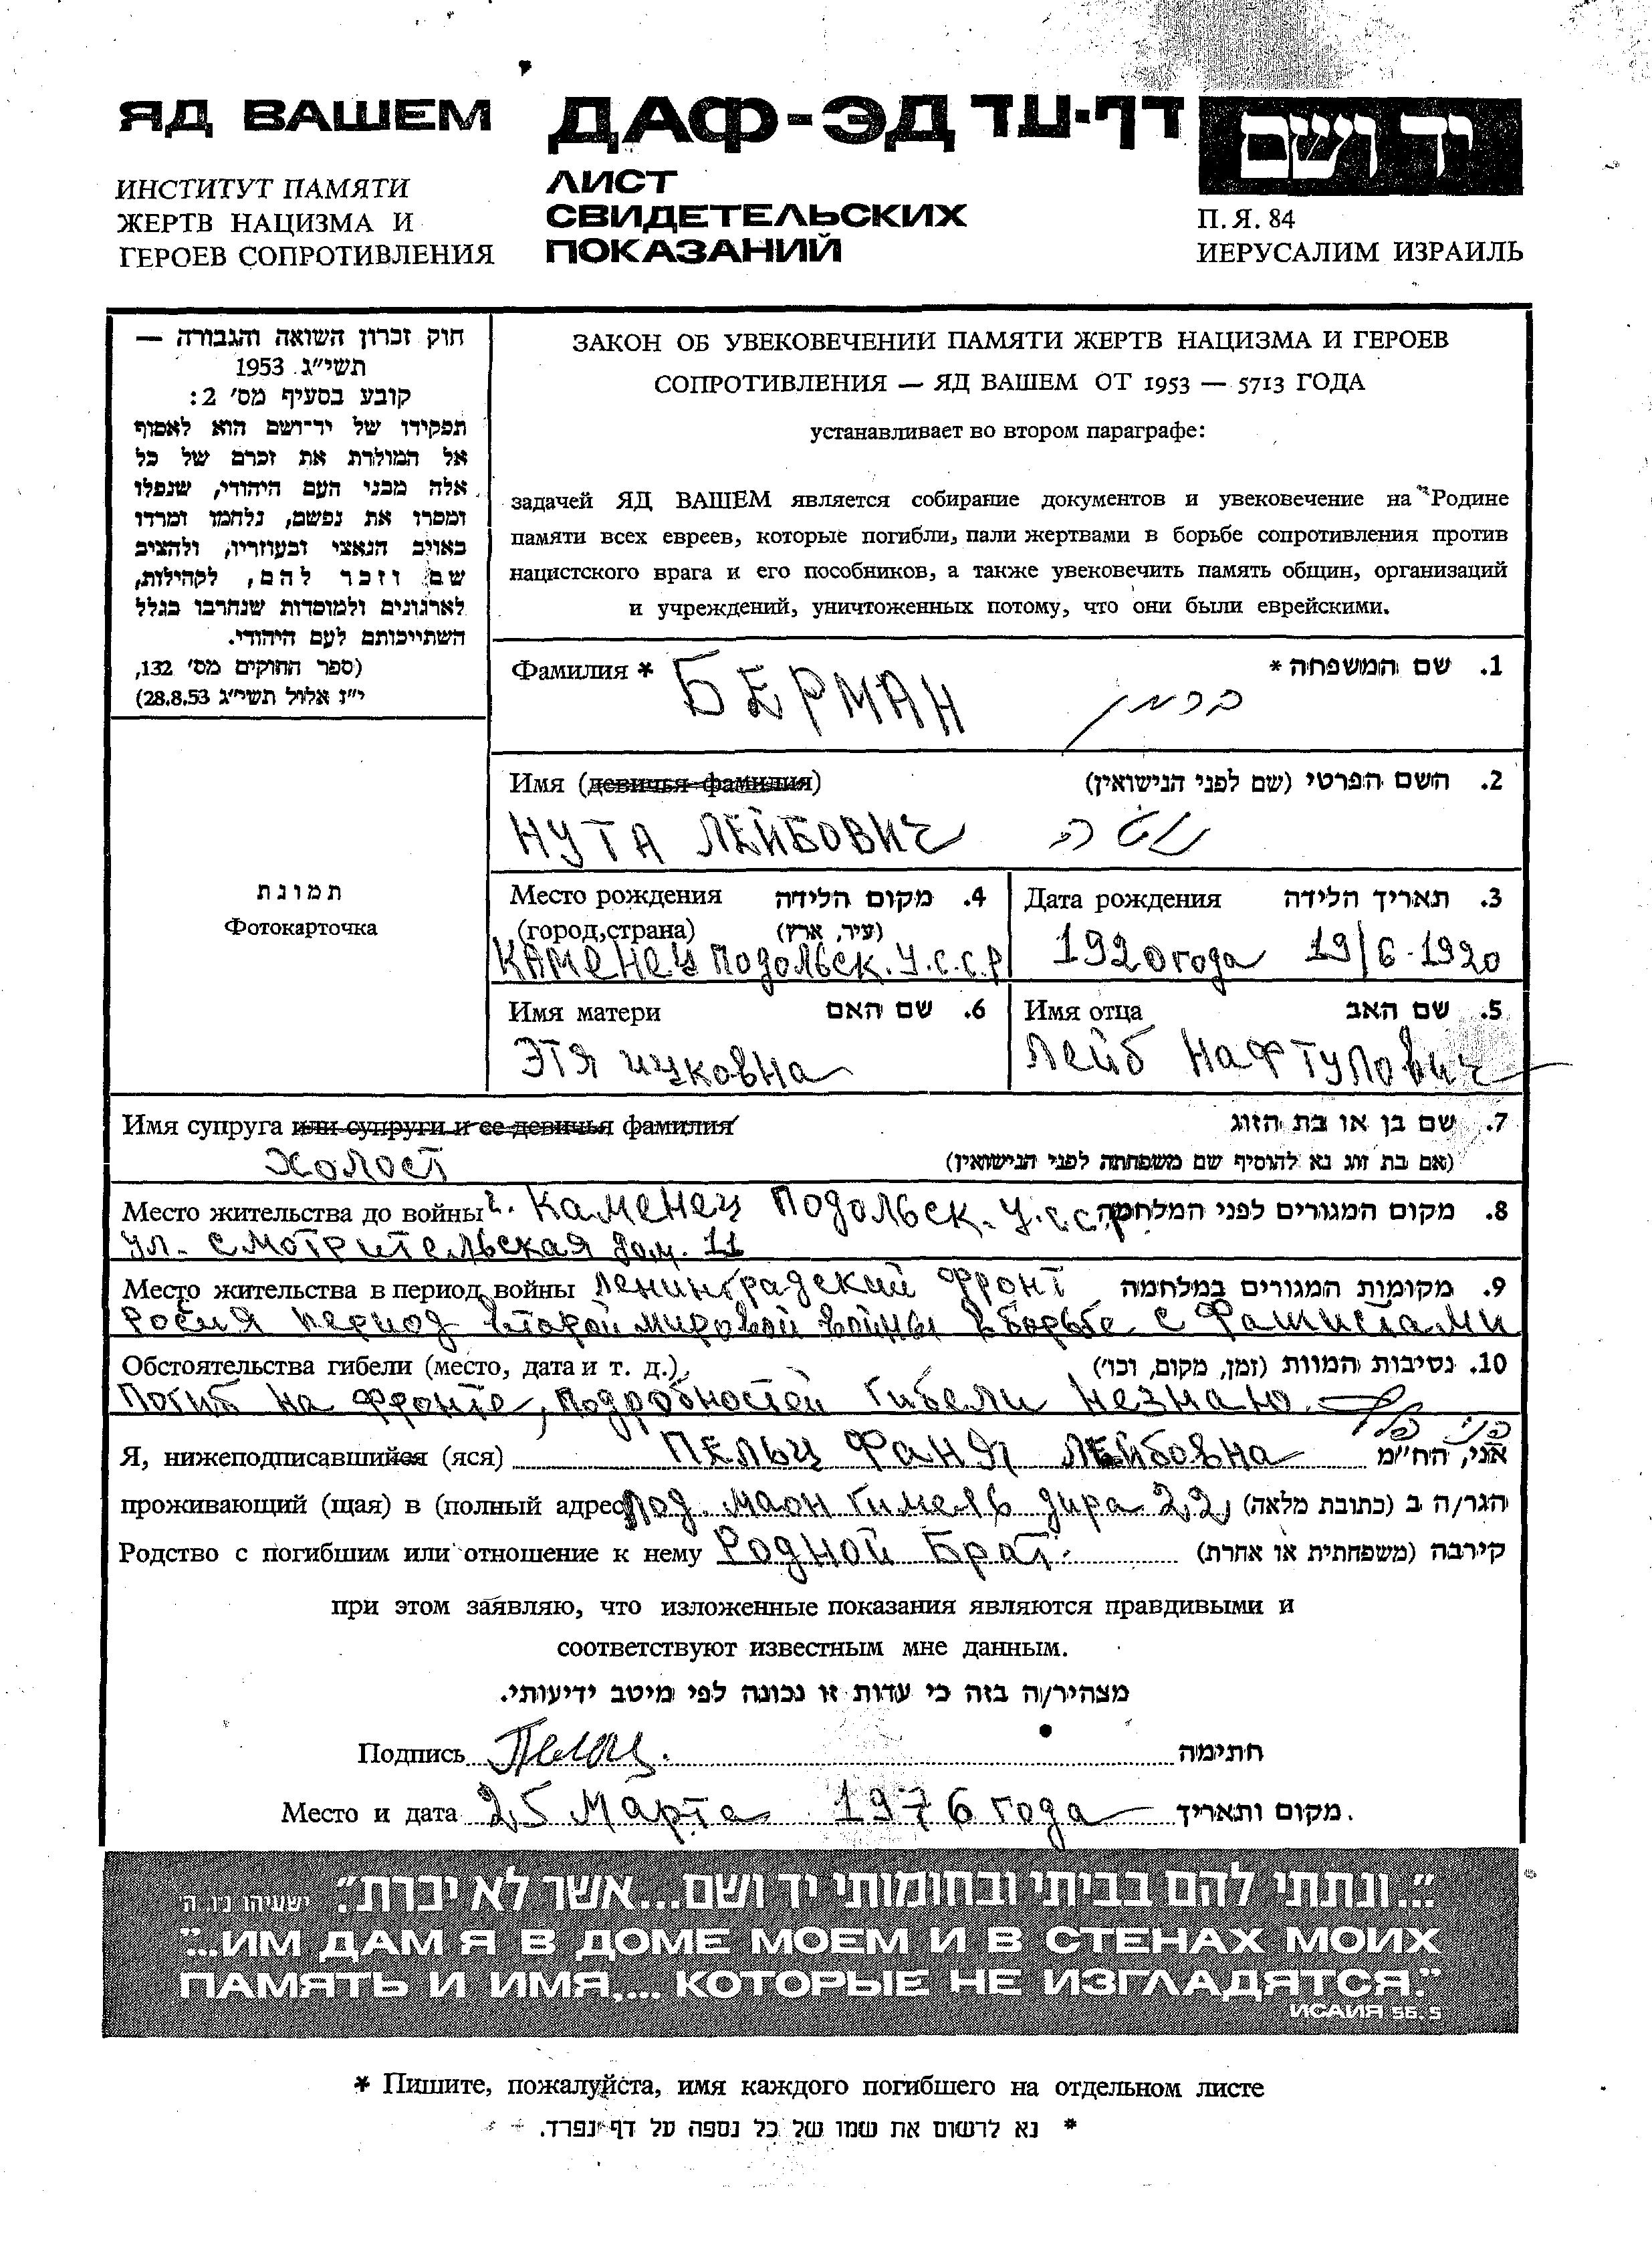 ЯД ВАШЕМ
ИНСТИТУТ ПАМЯТИ
ЖЕРТВ НАЦИЗМА И
ГЕРОЕВ СОПРОТИВЛЕНИЯ
ДАФ-ЭД דף-עד
ЛИСТ
СВИДЕТЕЛЬСКИХ
ПОКАЗАНИЙ
יד ושם
П.Я. 84
ИЕРУСАЛИМ ИЗРАИЛЬ
חוק זכרון השואה והגבורה —
תשי״ג 1953
קובע בסעיף מס׳ 2:
תפקידו של יד־ושם הוא לאסוף
אל המולדת את זכרם של כל
אלה מבני העם היהודי, שנפלו
ומסרו את נפשם, נלחמו ומרדו
באויב הנאצי ובעוזריו, ולהציב
שם וזכר להם, לקהילות,
לארגונים ולמוסדות שנחרבו בגלל
השתייכותם לעם היהודי.
(ספר החוקים מס׳ 132,
י״ז אלול תשי״ג 28.8.53)
ЗАКОН ОБ УВЕКОВЕЧЕНИИ ПАМЯТИ ЖЕРТВ НАЦИЗМА И ГЕРОЕВ
СОПРОТИВЛЕНИЯ — ЯД ВАШЕМ ОТ 1953 — 5713 ГОДА
устанавливает во втором параграфе:
задачей ЯД ВАШЕМ является собирание документов и увековечение на Родине
памяти всех евреев, которые погибли, пали жертвами в борьбе сопротивления против
нацистского врага и его пособников, а также увековечить память общин, организаций
и учреждений, уничтоженных потому, что они были еврейскими.
Фамилия * БЕРМАН ברמן 1. שם המשפחה *
Имя (девичья фамилия) 2. השם הפרטי (שם לפני הנישואין)
НУТА ЛЕЙБОВИЧ נוטה
Место рождения 4. מקום הלידה
(город,страна) (עיר, ארץ)
КАМЕНЕЦ ПОДОЛЬСК. У.С.С.Р
Дата рождения 3. תאריך הלידה
1920 года 19/6-1920
Имя матери 6. שם האם
ЭТЯ ИЦКОВНА
Имя отца 5. שם האב
Лейб Нафтулович
Имя супруга или супруги и ее девичья фамилия 7. שם בן או בת הזוג
холост (אם בת זוג נא להוסיף שם משפחתה לפני הנישואין)
Место жительства до войны г. Каменец Подольск. У.с.с.р 8. מקום המגורים לפני המלחמה
ул. Смотрительская дом. 11
Место жительства в период войны Ленинградский фронт 9. מקומות המגורים במלחמה
Росия период второй мировой войны в борьбе с фашистами
Обстоятельства гибели (место, дата и т. д.) 10. נסיבות המוות (זמן, מקום, וכו׳)
Погиб на фронте, подробностей гибели незнаю.
Я, нижеподписавшийся (яся) ПЕЛЬЦ ФАНЯ ЛЕЙБОВНА אני, הח״מ
проживающий (щая) в (полный адрес) Лод. маон гимель дира 22 הגר/ה ב (כתובת מלאה)
Родство с погибшим или отношение к нему Родной Брат. קירבה (משפחתית או אחרת)
при этом заявляю, что изложенные показания являются правдивыми и
соответствуют известным мне данным.
מצהיר/ה בזה כי עדות זו נכונה לפי מיטב ידיעותי.
Подпись Пельц. חתימה
Место и дата 25 Марта 1976 года מקום ותאריך.
„...ונתתי להם בביתי ובחומותי יד ושם...אשר לא יכרת״. ישעיהו נ״ו, ה׳
"...ИМ ДАМ Я В ДОМЕ МОЕМ И В СТЕНАХ МОИХ
ПАМЯТЬ И ИМЯ,... КОТОРЫЕ НЕ ИЗГЛАДЯТСЯ."
ИСАИЯ 56.5
* Пишите, пожалуйста, имя каждого погибшего на отдельном листе
* נא לרשום את שמו של כל נספה על דף נפרד.
תמונת
Фотокарточка